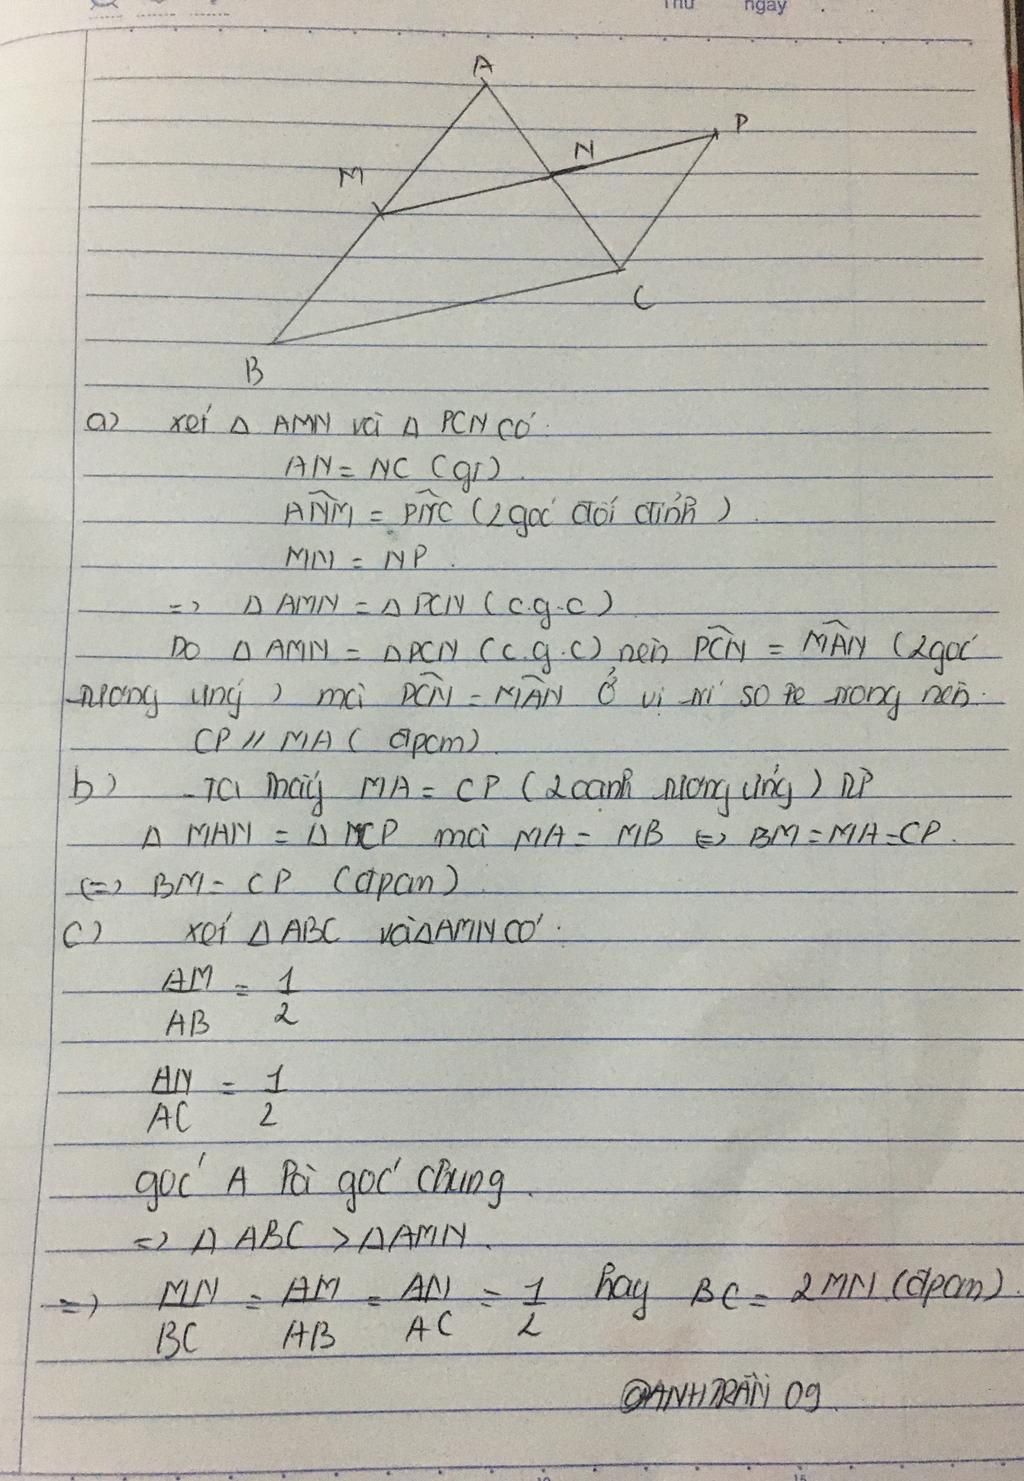 Thứ ngày
A
P
N
M
C
B
a) xét Δ AMN và Δ PCN có:
AN = NC (gt)
ANM = PNC (2 góc đối đỉnh)
MN = NP.
=> Δ AMN = Δ PCN (c.g.c)
Do Δ AMN = Δ PCN (c.g.c) nên PCN = MAN (2 góc
tương ứng) mà PCN = MAN Ở vị trí so le trong nên
CP // MA (đpcm)
b) - Ta thấy MA = CP (2 cạnh tương ứng)
Δ MAN = Δ NCP mà MA = MB <=> BM = MA = CP.
<=> BM = CP (đpcm)
c) xét Δ ABC và Δ AMN có:
AM/AB = 1/2
AN/AC = 1/2
góc A là góc chung.
=> Δ ABC > Δ AMN.
=> MN/BC = AM/AB = AN/AC = 1/2 hay BC = 2MN (đpcm)
@ANHTRẦN 09
10 15